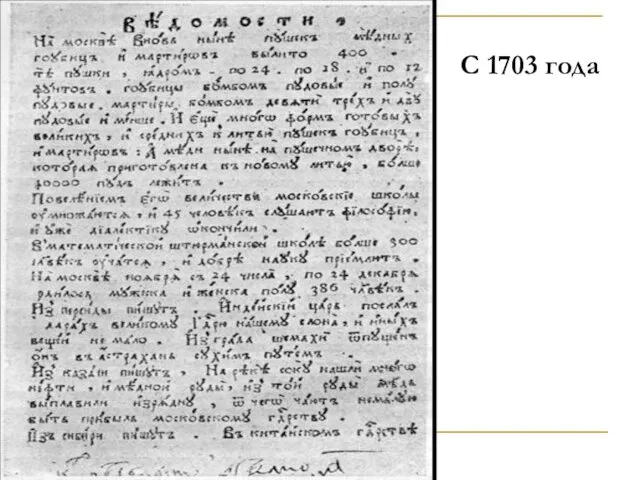 ВѢДОМОСТИ
На москвѣ вновь нынѣ пушекъ мѣдныхъ
гоубицъ, и мартировъ вылито 400.
тѣ пушки, ядромъ. по 24. по 18. и по 12
фунтовъ. гоубицы бомбомъ пудовые и полу
пудовые. мартиры бомбомъ девяти трехъ и двꙋ
пудовые и менше. И еще много формъ готовыхъ
великихъ, и среднихъ к литью пушекъ гоубицъ,
и мартировъ: А мѣди нынѣ на пушечномъ дворѣ,
которая приготовлена къ новому литью, болше
40000 пудъ лежитъ.
Повелѣніемъ егѡ величества московскіе школы
оумножаются, и 45 человѣкъ слушаютъ філософію,
и уже діалектику ѡкончили.
В математіческой штюрманской школѣ болше 300
чл҃вѣкъ оучатся, и добрѣ науку пріемлютъ.
На москвѣ, ноября съ 24 числа, по 24 декабря
родилось мужска и женска полу 386 чл҃вѣкъ.
Изъ персиды пишутъ. Индѣйскій царь послалъ
в дарахъ великому Гд҃рю нашему слона, и иныхъ
вещей не мало. Изъ града шемахи ѿпущенъ
онъ въ астрахань сухимъ путемъ.
Изъ казани пишутъ. На рѣкѣ соку нашли много
нефти, и мѣдной руды, изъ той руды мѣдь
выплавили изрядну, ѿ чегѡ чаютъ немалую
быть прибыль московскому гд҃рству.
Изъ сибири пишутъ. Въ китайскомъ гд҃рствѣ
С 1703 года